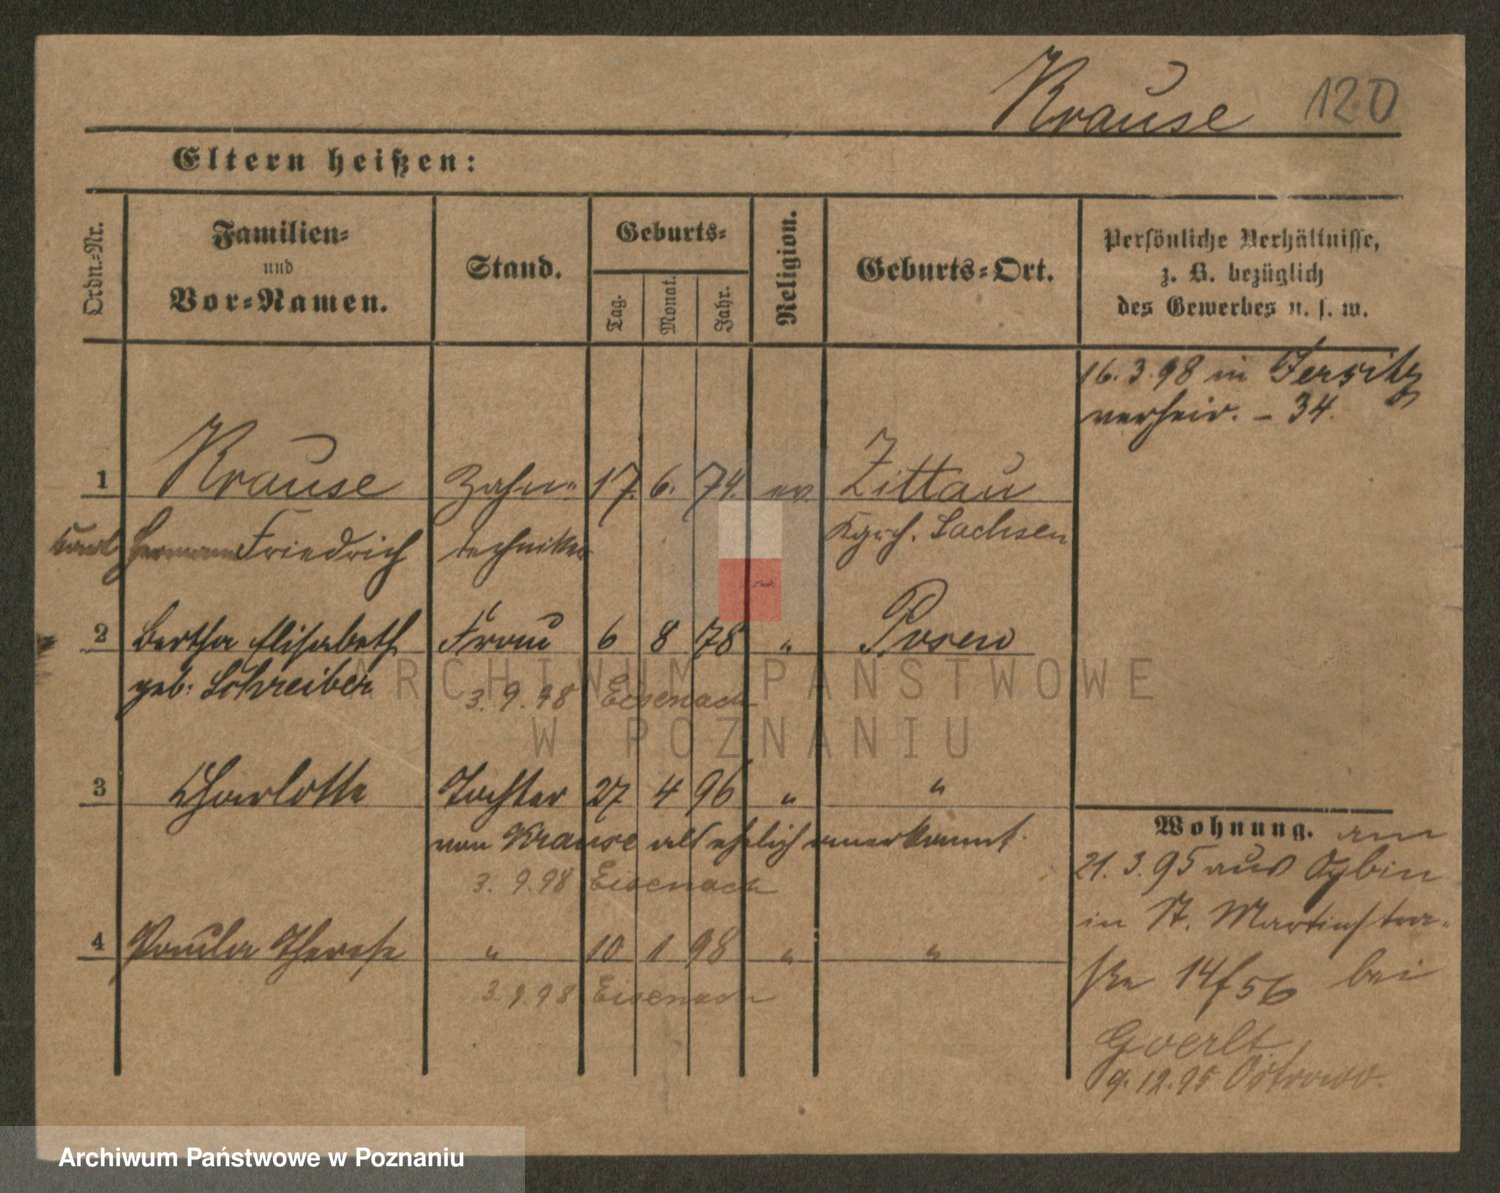 Krause 120
Eltern heißen:
Ordn.-Nr.
Familien-
und
Vor-Namen.
Stand.
Geburts-
Tag.
Monat.
Jahr.
Religion.
Geburts-Ort.
Persönliche Verhältnisse,
z. B. bezüglich
des Gewerbes u. s. w.
16.3.98 in Jersitz
verheir. – 34.
1 Krause Zahn- 17. 6. 74. ev. Zittau
Karl Hermann Friedrich techniker Kgrch. Sachsen
2 Bertha Elisabeth Frau 6 8 78 " Posen
geb. Schreiber
3.9.98 Eisenach
3 Charlotte Tochter 27 4 96 " "
von Krause als ehelich anerkannt.
3.9.98 Eisenach
4 Paula Therese " 10 1 98 " "
3.9.98 Eisenach
Wohnung. am
21.3.95 aus Oybin
in St. Martinstra-
ße 14/56 bei
Goerlt
9.12.95 Ostrowo.
ARCHIWUM PAŃSTWOWE
W POZNANIU
Archiwum Państwowe w Poznaniu